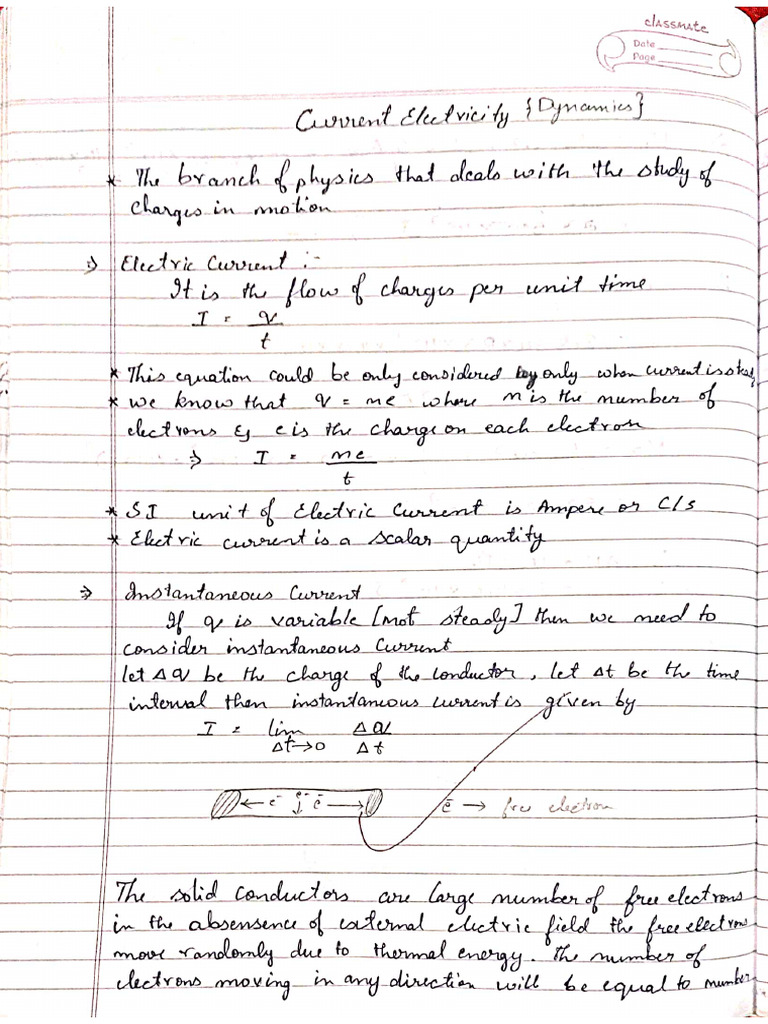 classmate
Date
Page
Current Electricity {Dynamics}
* The branch of physics that deals with the study of
charges in motion
⇒ Electric Current :-
It is the flow of charges per unit time
I = q/t
* This equation could be only considered only when current is steady
* we know that q = ne where n is the number of
electrons & e is the charge on each electron
⇒ I = ne/t
* SI unit of Electric Current is Ampere or C/s
* Electric current is a scalar quantity
⇒ Instantaneous Current
If q is variable [not steady] then we need to
consider instantaneous current
let Δq be the charge of the conductor, let Δt be the time
interval then instantaneous current is given by
I = lim Δt→0 Δq/Δt
← e⁻ e⁻ ↓ e⁻ → e⁻ → free electron
The solid conductors are large number of free electrons
in the absensence of external electric field the free electrons
move randomly due to thermal energy. The number of
electrons moving in any direction will be equal to number